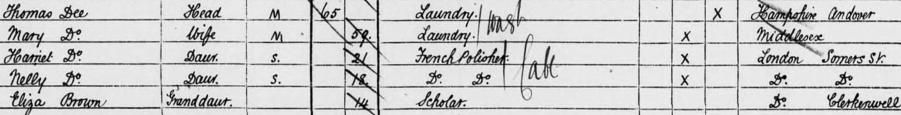 Thomas Dee Head M 65 Laundry X Hampshire Andover
Mary Do. Wife M 59 Laundry. X Middlesex
Harriet Do. Daur. S. 21 French Polisher X London Somers St.
Nelly Do. Daur. S. 18 Do. Do. X Do. Do.
Eliza Brown Granddaur. 14 Scholar. Do. Clerkenwell